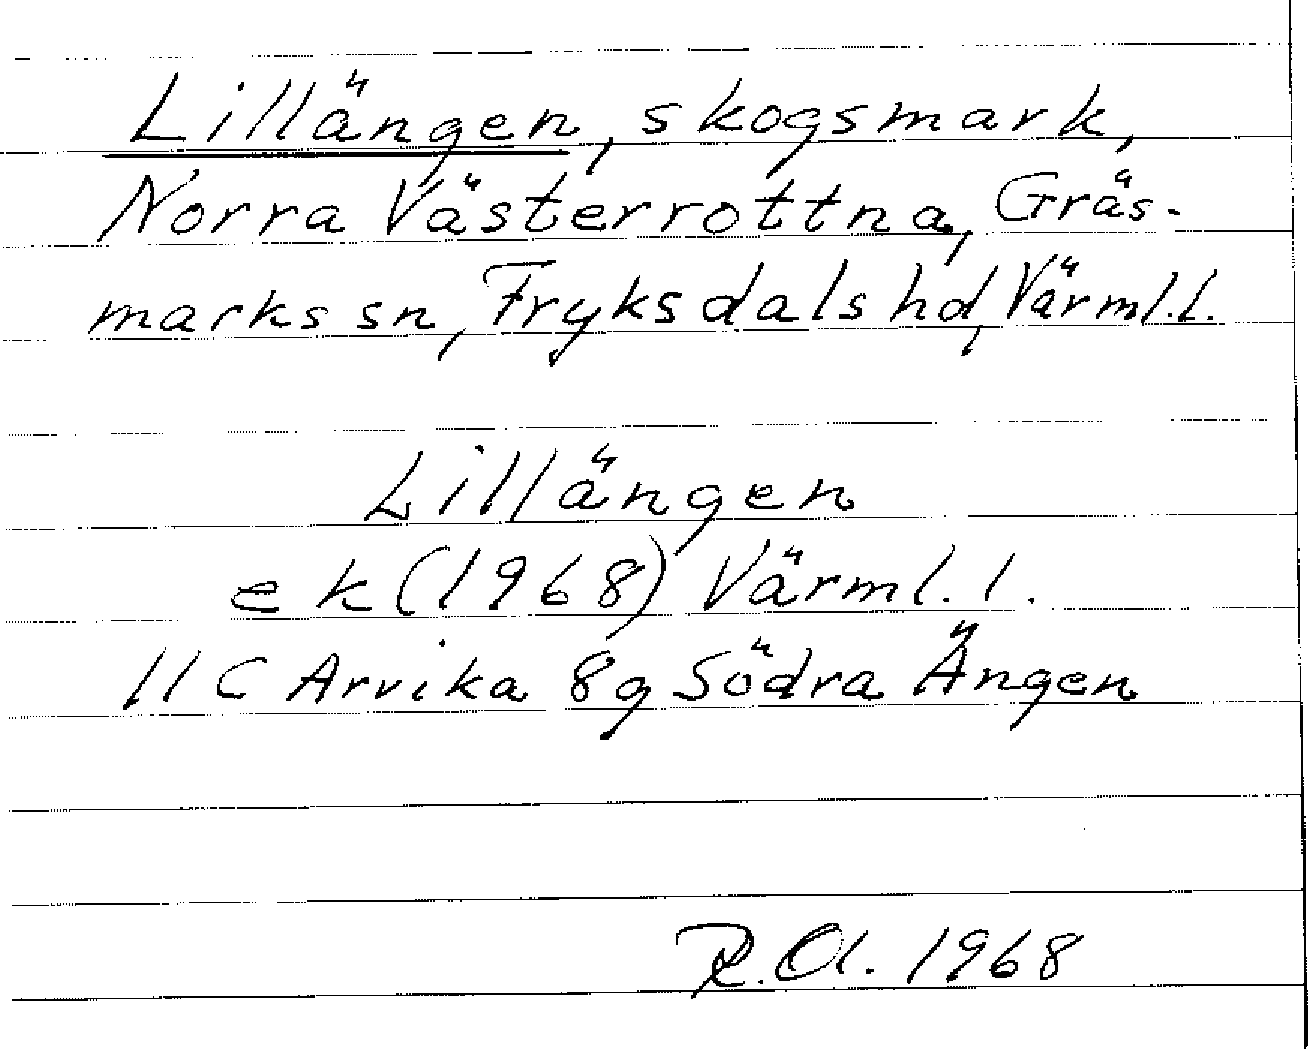 Lillängen, skogsmark,
Norra Västerrottna, Gräs-
marks sn, Fryksdals hd, Värml.l.
Lillängen
ek (1968) Värml.l.
11C Arvika 8g Södra Ängen
R.Ol. 1968